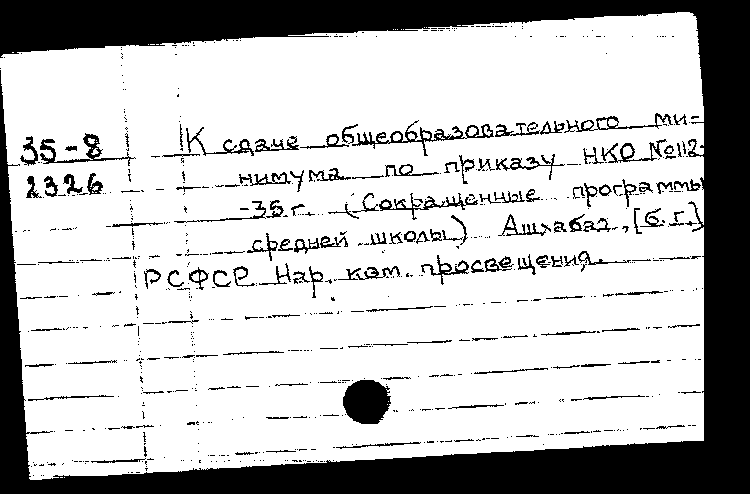 35-8 К сдаче общеобразовательного ми-
2326 нимума по приказу НКО №112-
-35 г. (Сокращенные программы
средней школы) Ашхабад, [б.г.]
РСФСР Нар. ком. просвещения.